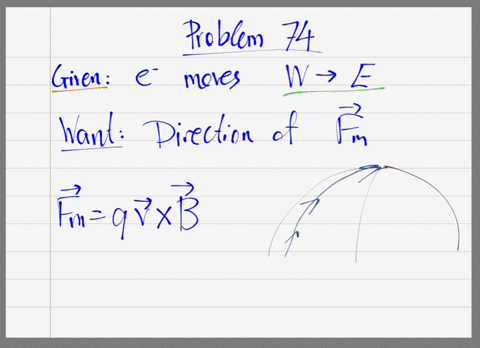 Problem 74
Given: e⁻ moves W → E
Want: Direction of F⃗m
F⃗m = q v⃗ × B⃗